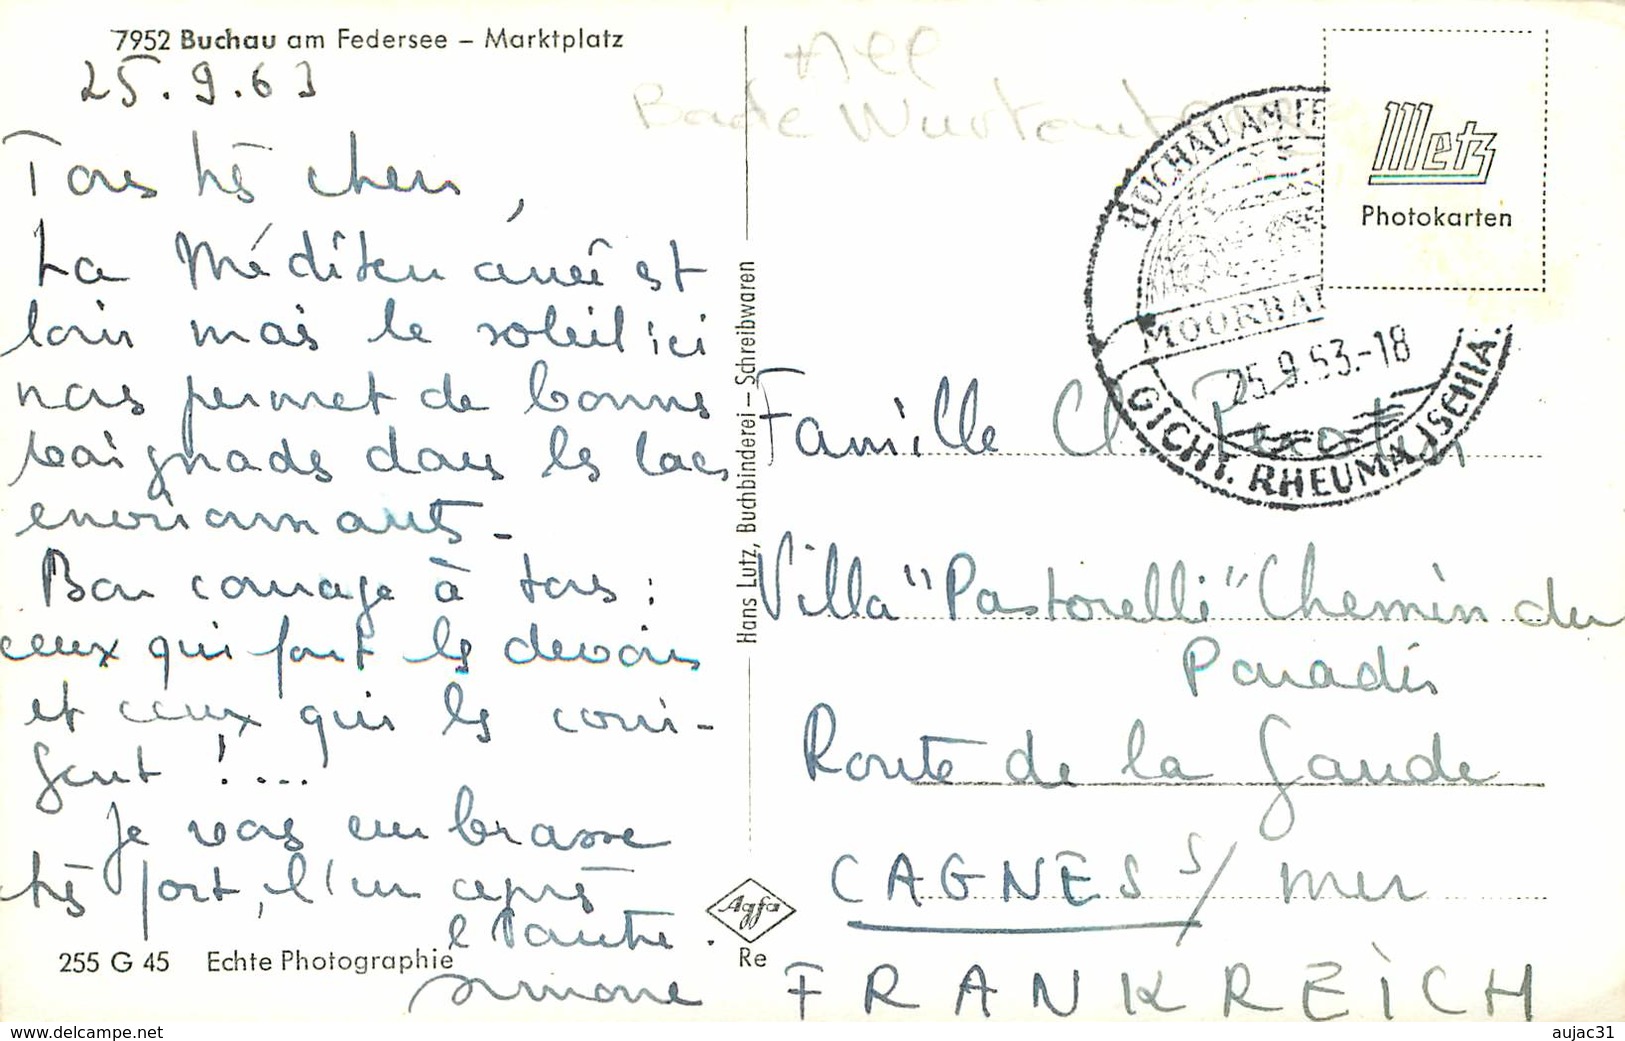 7952 Buchau am Federsee – Marktplatz
25.9.63
Tous très chers,
La Méditerranée est
loin mais le soleil ici
nous permet de bonnes
baignades dans les lacs
environnants -
Bon courage à tous :
ceux qui font les devoirs
et ceux qui les corri-
gent !...
Je vous embrasse
très fort, l'un après
l'autre.
Simone
255 G 45 Echte Photographie
Hans Lutz, Buchbinderei – Schreibwaren
Agfa
Re
All
Bade Wurtemberg
BUCHAU AM FE
MOORBA
25.9.63.-18
GICHT. RHEUMA. ISCHIA
Metz
Photokarten
Famille Cl
Villa "Pastorelli" Chemin du
Paradis
Route de la Gaude
CAGNES s/ mer
FRANKREICH
www.delcampe.net
aujac31